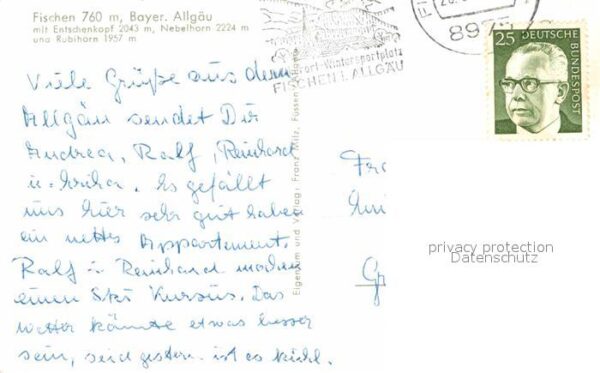 Fischen 760 m, Bayer. Allgäu
mit Entschenkopf 2043 m, Nebelhorn 2224 m
und Rubihorn 1957 m
ort-Wintersportplatz
FISCHEN I. ALLGÄU
897
25
DEUTSCHE
BUNDESPOST
Viele Grüße aus dem
Allgäu sendet Dir
Andrea, Ralf, Reinhard
u. Es gefällt
uns hier sehr gut haben
ein nettes Appartement.
Ralf u. Reinhard machen
einen Ski Kursus. Das
Wetter könnte etwas besser
sein, seid gestern ist es kühl.
Eigentum und Verlag: Franz Milz, Füssen
privacy protection
Datenschutz